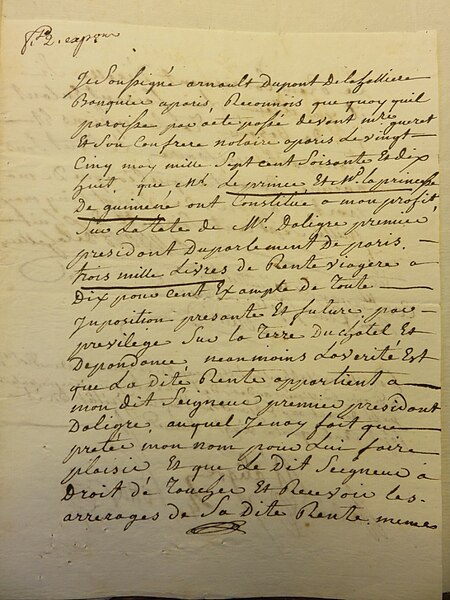 Je Soussigné arnault Dupont de la halliere
Banquier aparis, Reconnois que quoy quil
paroisse par acte passé devant mre. gueret
Et Son Confrere notaire aparis Le vingt
Cinq may mille Sept cent Soisante Et dix
huit, que Mr. Le prince Et Me. la princesse
De guimene ont Constitué a mon profit,
Sur La tete de Mr. Daligre premier
president Du parlement de paris. —
trois mille Livres de Rente viagere a
Dix pour cent Exampte de Toute —
Inposition presante Et future, par —
previlege Sur la Terre Du Chatel Et
Dependance, neanmoins La verité Est
que La Dite Rente appartient a —
mon dit Seigneur premier president
Daligre, auquel Jenay fait que
preter mon nom pour Lui faire
plaisir Et que Le Dit Seigneur a
Droit dé Toucher Et Recevoir les.
arrerages de Sa Dite Rente, memes